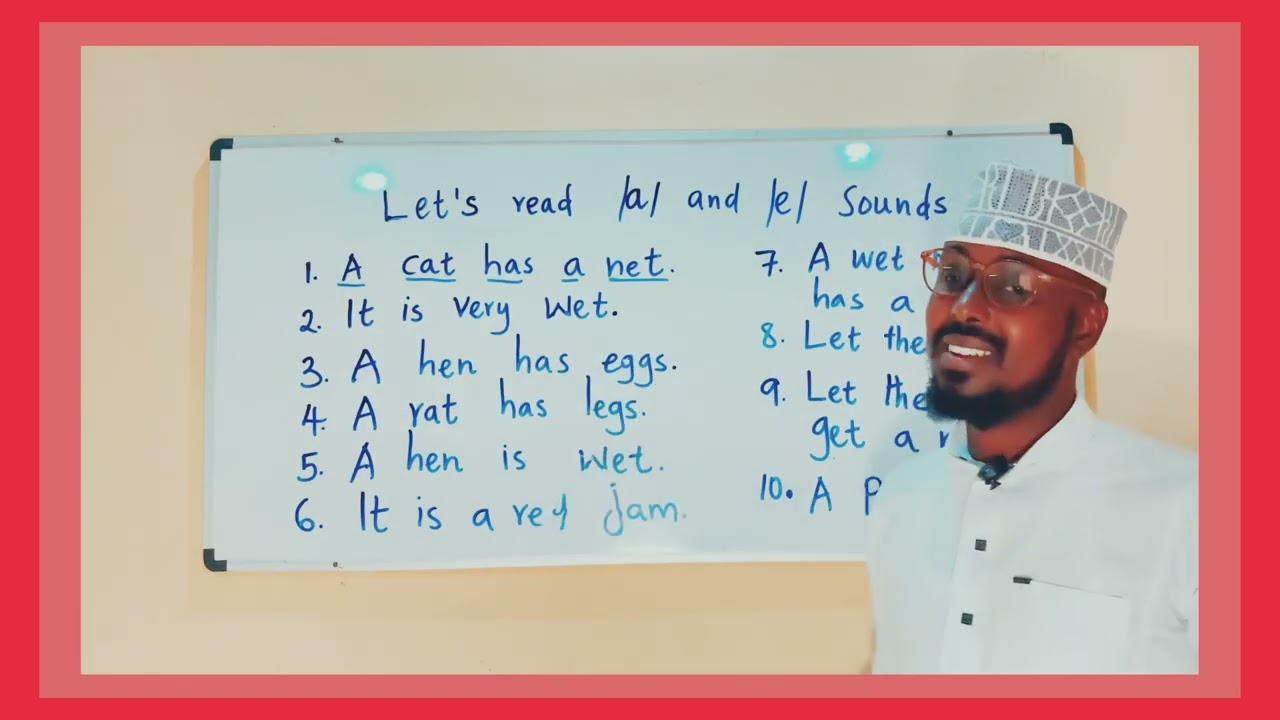 Let's read /a/ and /e/ Sounds
1. A cat has a net.
2. It is very wet.
3. A hen has eggs.
4. A rat has legs.
5. A hen is wet.
6. It is a red jam.
7. A wet
has a
8. Let the
9. Let the
get a
10. A